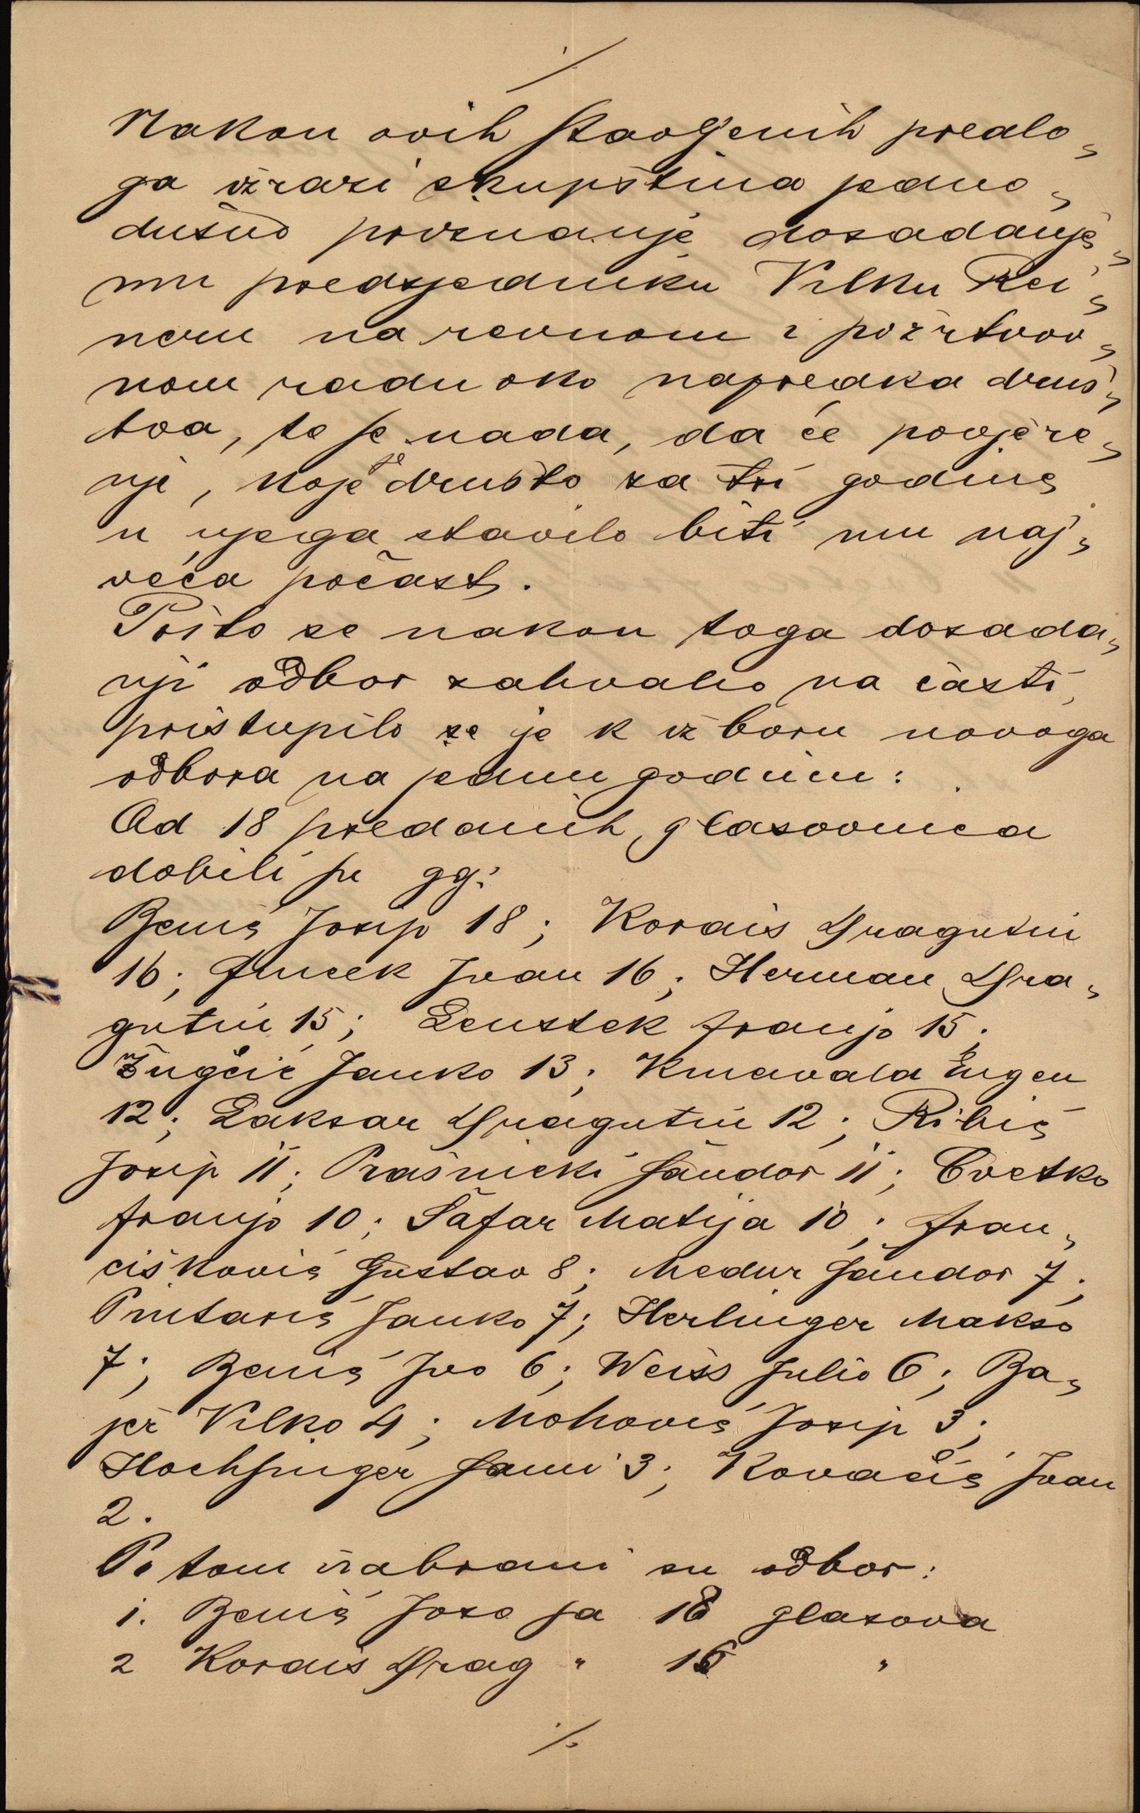 ·/.
Nakon ovih stavljenih predlo„
ga izrazi skupština jedno„
dušno priznanje dosadanje„
mu predsjedniku Vilku Rei„
neru na revnom i požrtvov„
nom radu oko napredka druš„
tva, te se nada, da će povjere„
nje, koje društvo za tri godine
u njega stavilo biti mu naj„
veća počast.
Pošto se nakon toga dosada„
nji odbor zahvalio na časti,
pristupilo se je k izboru novoga
odbora na jednu godinu:
Od 18 predanih glasovnica
dobili su gg:
Beniš Josip 18; Korais Dragutin
16; Ivan 16; Herman Dra„
gutin 15; Leustek Franjo 15;
Žugčić Janko 13; Knavala Eugen
12; Laksar Dragutin 12; Ribiš
Josip 11; Prašnicki Šandor 11; Cvetko
Franjo 10; Šafar Matija 10; Fran„
cišković Gustav 8; Medur Šandor 7;
Pintarić Janko 7; Herlinger Makso
7; Beniš Ivo 6; Weiss Julio 6; Ba„
jer Vilko 4; Mohović Josip 3;
Hochsinger Sami 3; Kovačić Ivan
2.
Po tom izabrani su odbor:
1. Beniš Joso sa 18 glasova
2 Korais Drag " 16 "
·/.